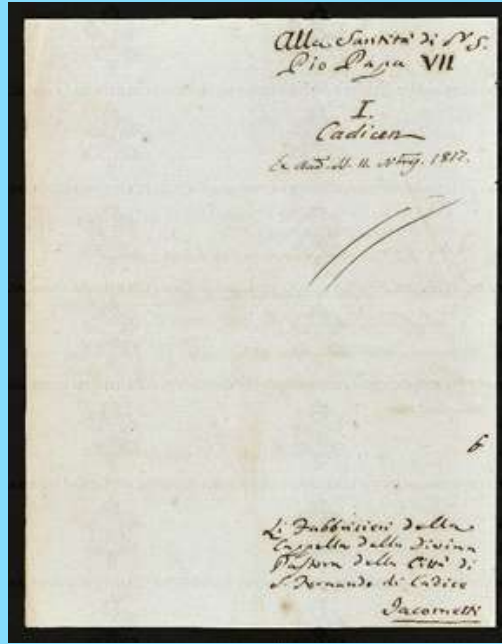 Alla Santità di N.S.
Pio Papa VII
I.
Cadicen
Ex Aud. SS. 11. 1817.
6
Li Fabbricieri della
Cappella della Divina
Pastora della Città di
S. Fernando di Cadice
Jacometti